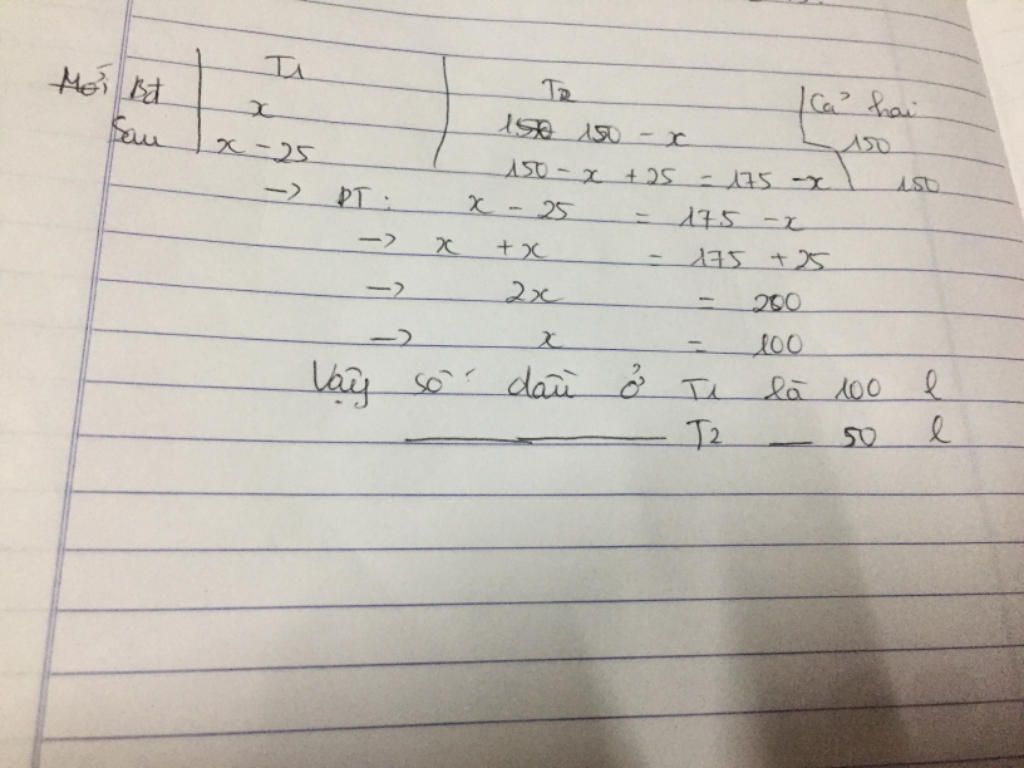 T1 T2 Cả hai
Mới Bđ x 150 150 - x 150
Sau x - 25 150 - x + 25 = 175 - x 150
-> PT: x - 25 = 175 - x
-> x + x = 175 + 25
-> 2x = 200
-> x = 100
Vậy số dầu ở T1 là 100 l
T2 — 50 l